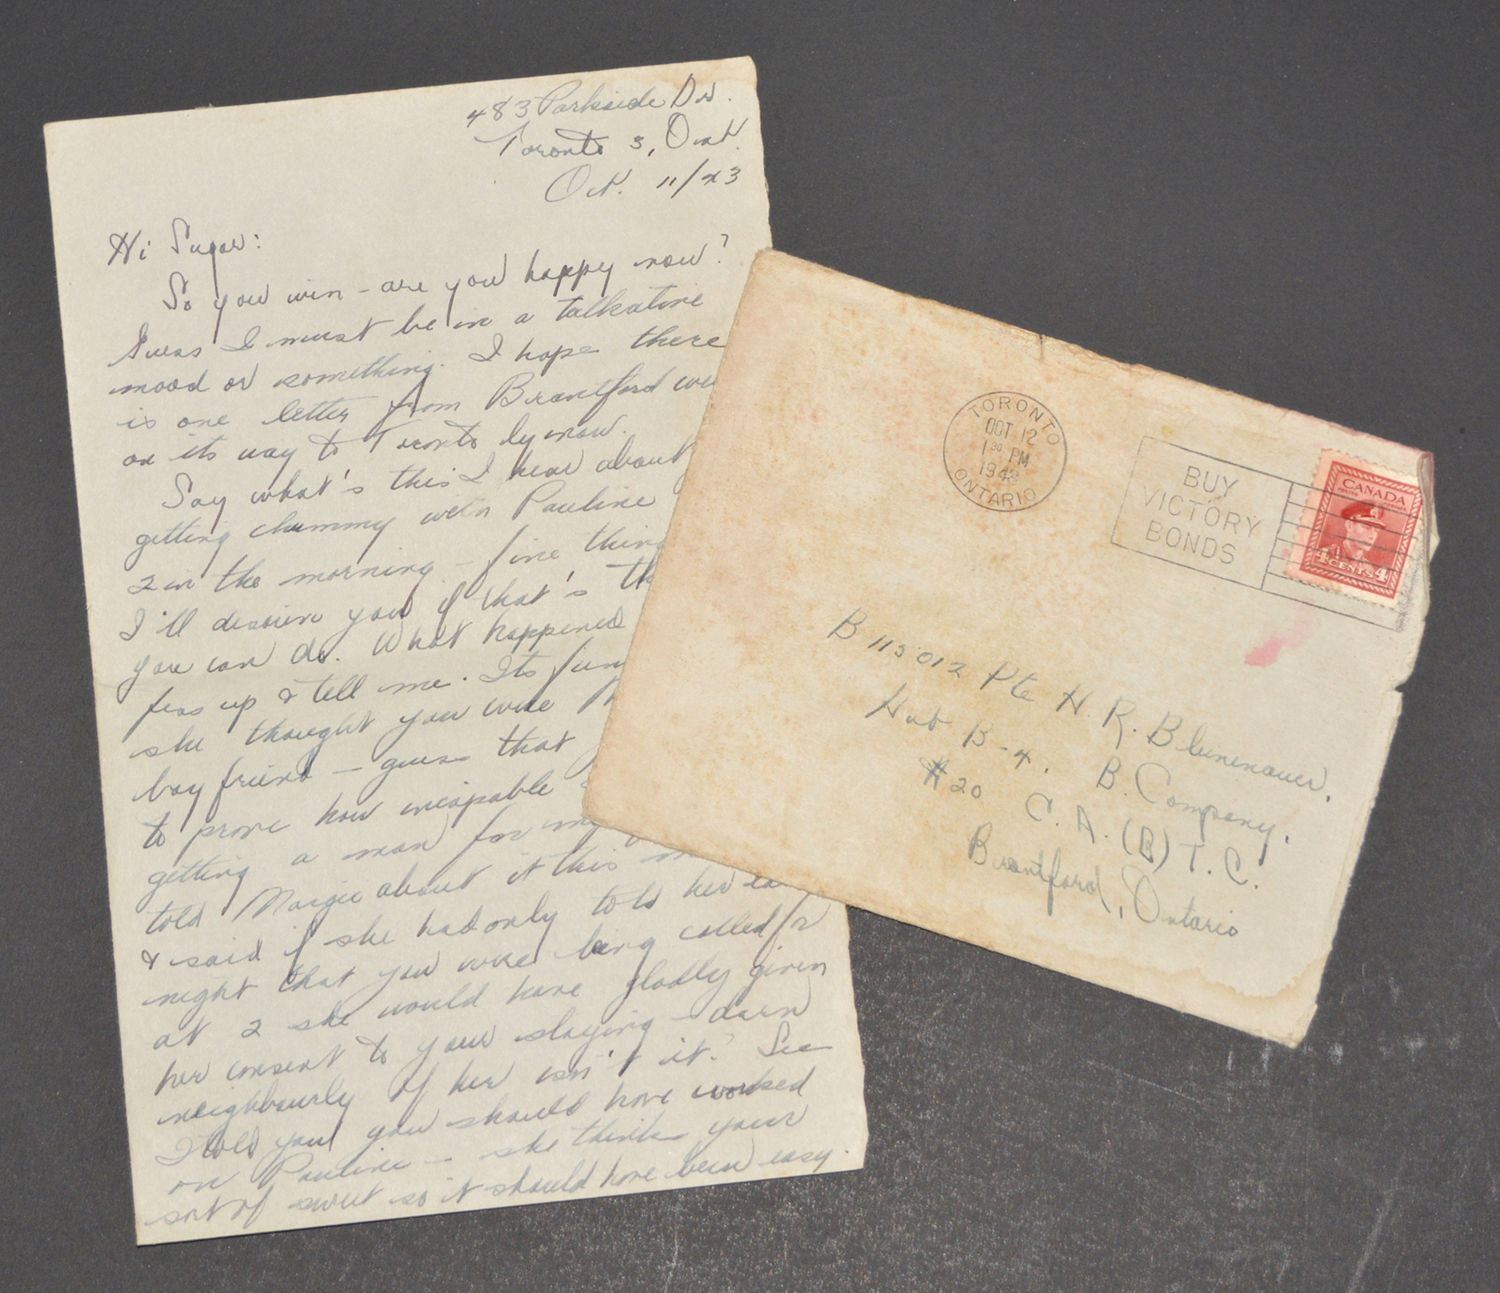 483 Parkside Dr.
Toronto 3, Ont.
Oct. 11/43
Hi Sugar:
So you win - are you happy now?
Guess I must be in a talkative
mood or something. I hope there
is one letter from Brantford
on its way to Toronto by now.
Say what's this I hear about
getting chummy with Pauline
2 in the morning - fine thing
I'll disown you if that's
you can do. What happened
fess up & tell me. Its
she thought you were
boy friend - guess that
to prove how incapable
getting a man for my
told Margie about it this
& said if she had only told her
night that you were being called for
at 2 she would have gladly given
her consent to your staying - darn
neighbourly of her isn't it? See
I told you you should have worked
on Pauline - she thinks your
sort of sweet so it should have been easy.
TORONTO
OCT 12
1 30 PM
1943
ONTARIO
BUY
VICTORY
BONDS
CANADA
4 CENTS 4
B 115012 Pte H. R. Blunenauer.
Hut B-4. B. Company.
#20 C. A. (B) T. C.
Brantford, Ontario